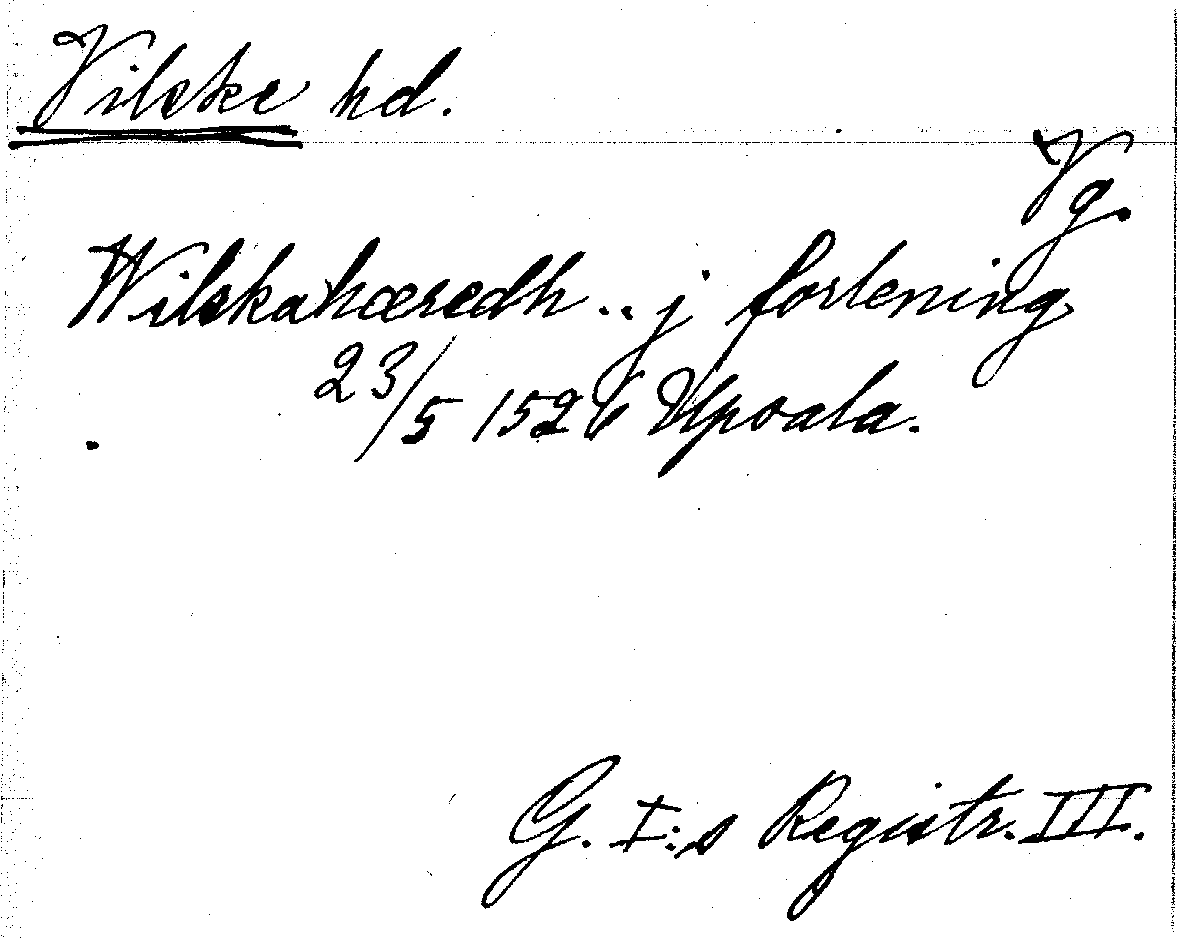 Vilske hd.
Vg.
Wilskahæredh .. j forlening
23/5 1526 Upsala.
G. I:s Registr. III.